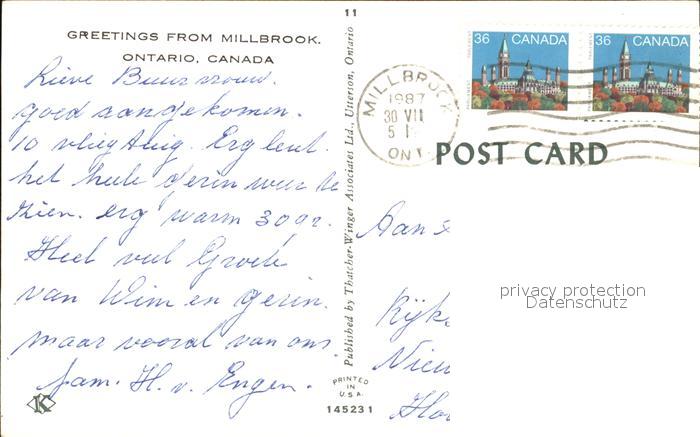 11
GREETINGS FROM MILLBROOK.
ONTARIO, CANADA
Lieve Buurvrouw.
goed aangekomen.
10 vliegtuig. Erg leuk.
het hele gezin weer te
zien. erg warm 30 gr.
Heel veel Groete
van Wim en gerin.
maar vooral van ons.
fam. H. v. Engen.
K
Published by Thatcher-Winger Associates Ltd., Utterson, Ontario
PRINTED
IN
U.S.A.
145231
36 CANADA
36 CANADA
MILLBROOK
1987
30 VII
ONT.
POST CARD
Aan
privacy protection
Datenschutz